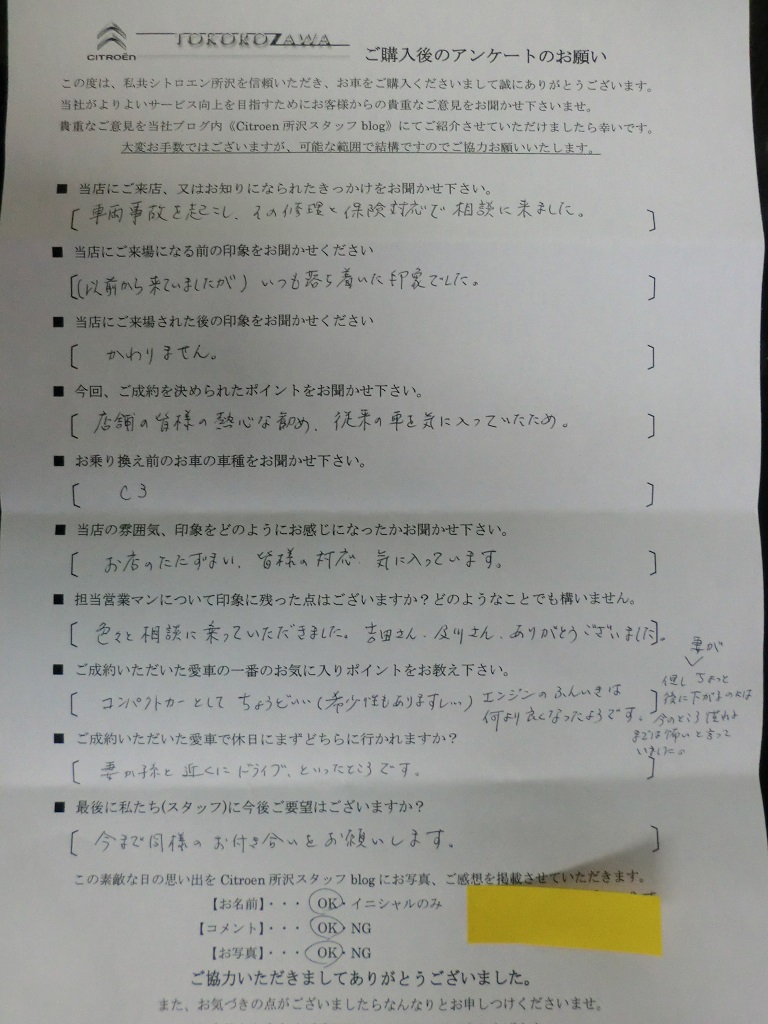 CITROËN
TOKOROZAWA
ご購入後のアンケートのお願い
この度は、私共シトロエン所沢を信頼いただき、お車をご購入くださいまして誠にありがとうございます。
当社がよりよいサービス向上を目指すためにお客様からの貴重なご意見をお聞かせ下さいませ。
貴重なご意見を当社ブログ内《Citroen 所沢スタッフ blog》にてご紹介させていただけましたら幸いです。
大変お手数ではございますが、可能な範囲で結構ですのでご協力お願いいたします。
■ 当店にご来店、又はお知りになられたきっかけをお聞かせ下さい。
[ 車両事故を起こし、その修理と保険対応で相談に来ました。 ]
■ 当店にご来場になる前の印象をお聞かせください
[ (以前から来ていましたが) いつも落ち着いた印象でした。 ]
■ 当店にご来場された後の印象をお聞かせください
[ かわりません。 ]
■ 今回、ご成約を決められたポイントをお聞かせ下さい。
[ 店舗の皆様の熱心な勧め、従来の車を気に入っていたため。 ]
■ お乗り換え前のお車の車種をお聞かせ下さい。
[ C3 ]
■ 当店の雰囲気、印象をどのようにお感じになったかお聞かせ下さい。
[ お店のたたずまい、皆様の対応、気に入っています。 ]
■ 担当営業マンについて印象に残った点はございますか？どのようなことでも構いません。
[ 色々と相談に乗っていただきました。吉田さん、及川さん、ありがとうございました。 ]
■ ご成約いただいた愛車の一番のお気に入りポイントをお教え下さい。
[ コンパクトカーとして ちょうどいい (希少性もありますし…) エンジンのふんいきは
何より良くなったようです。 ]
妻が
但し ちょっと
後に下がるの大は
今のところ慣れる
までは怖いと言って
いました。
■ ご成約いただいた愛車で休日にまずどちらに行かれますか？
[ 妻か孫と近くにドライブ、といったところです。 ]
■ 最後に私たち(スタッフ)に今後ご要望はございますか？
[ 今まで同様のお付き合いをお願いします。 ]
この素敵な日の思い出を Citroen 所沢スタッフ blog にお写真、ご感想を掲載させていただきます。
【お名前】・・・ OK・イニシャルのみ
【コメント】・・・ OK・NG
【お写真】・・・ OK・NG
ご協力いただきましてありがとうございました。
また、お気づきの点がございましたらなんなりとお申しつけくださいませ。